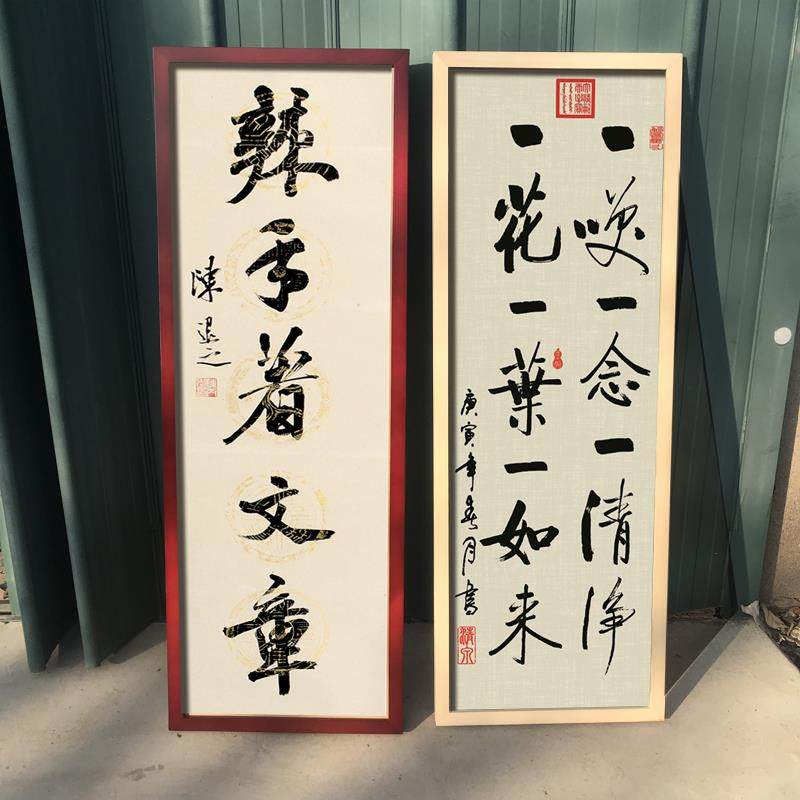 辣手著文章
陳退之
一咲一念一清净
一花一葉一如来
庚寅年春月書